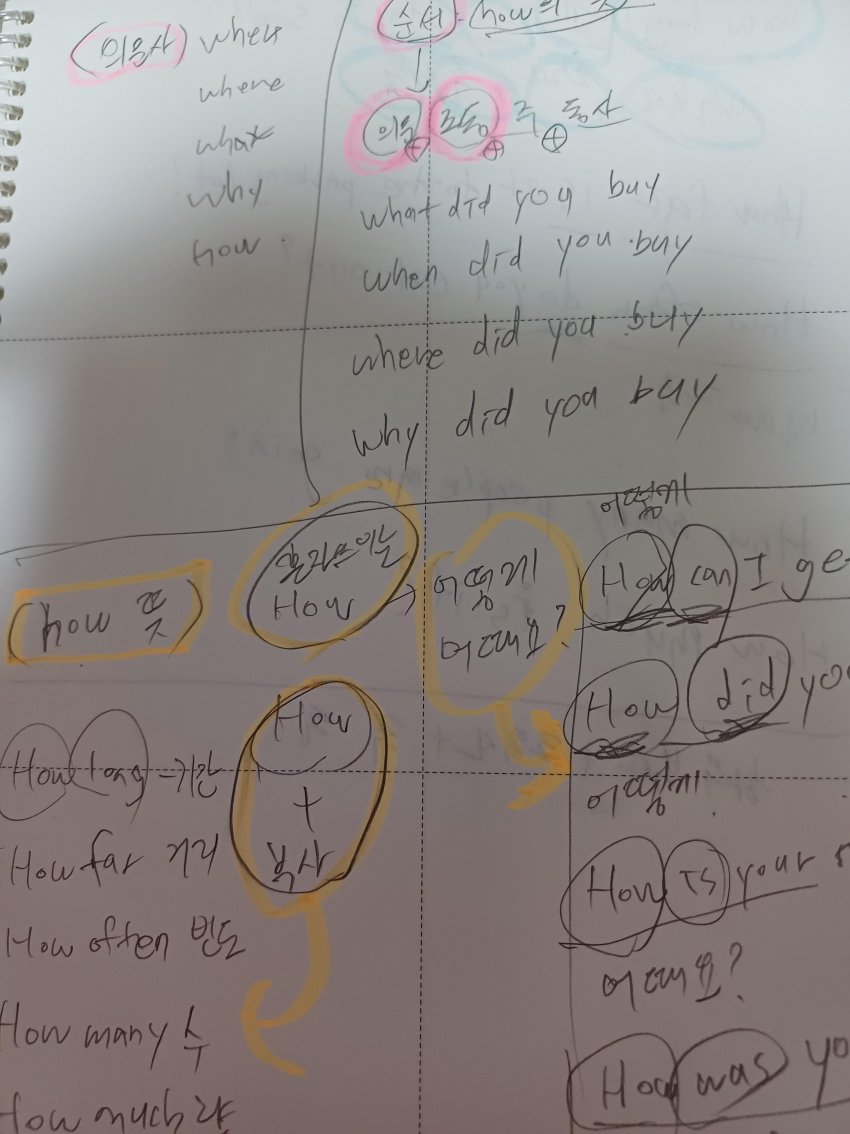 (의문사) when
where
what
why
how
순서 : how의
의문 + 조동 + 주 + 동사
what did you buy
when did you buy
where did you buy
why did you buy
(how 뜻)
혼자쓰이는
How → 어떻게
어때요?
How
+
부사
How long → 기간
How far 거리
How often 빈도
How many 수
How much 양
어떻게
How can I ge
How did yo
어떻게
How is your
어때요?
How was yo